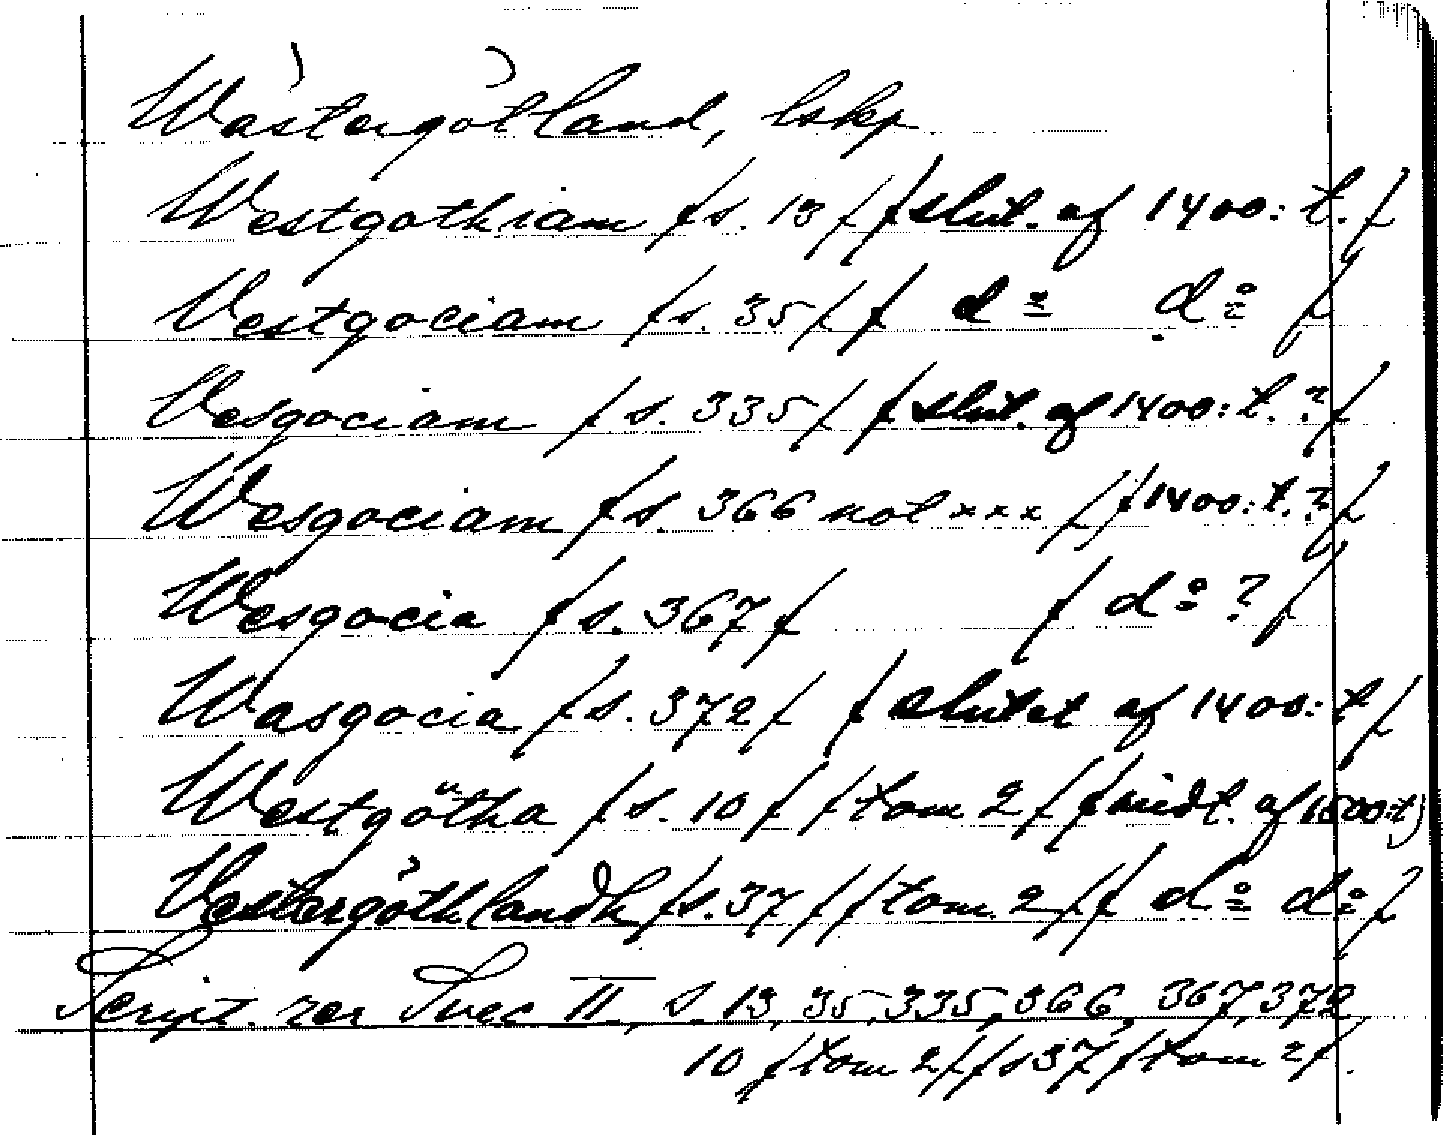 Wästergötland, lskp
Westgothiam /s. 13/ /slut. af 1400: t./
Vestgociam /s. 35/ / do do /
Vesgociam /s. 335/ /slut. af 1400: t.?/
Wesgociam /s. 366 not xxx/ /1400: t.?/
Wesgocia /s. 367/ / do ? /
Wasgocia /s. 372/ /slutet af 1400: t/
Westgötha /s. 10/ /tom 2/ /midt. af 1500: t)
Vestergöthlandh /s. 37/ /tom. 2/ / do do /
Script. rer Svec II, s. 13, 35, 335, 366, 367, 372
10 /tom 2/ /s 37/ tom 2/.